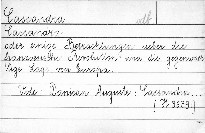 Cassandra
Cassandra
oder einige Betrachtungen über die
französische Revolution und die gegenwär-
tige Lage von Europa.
Vide Danican Auguste: Cassandra...